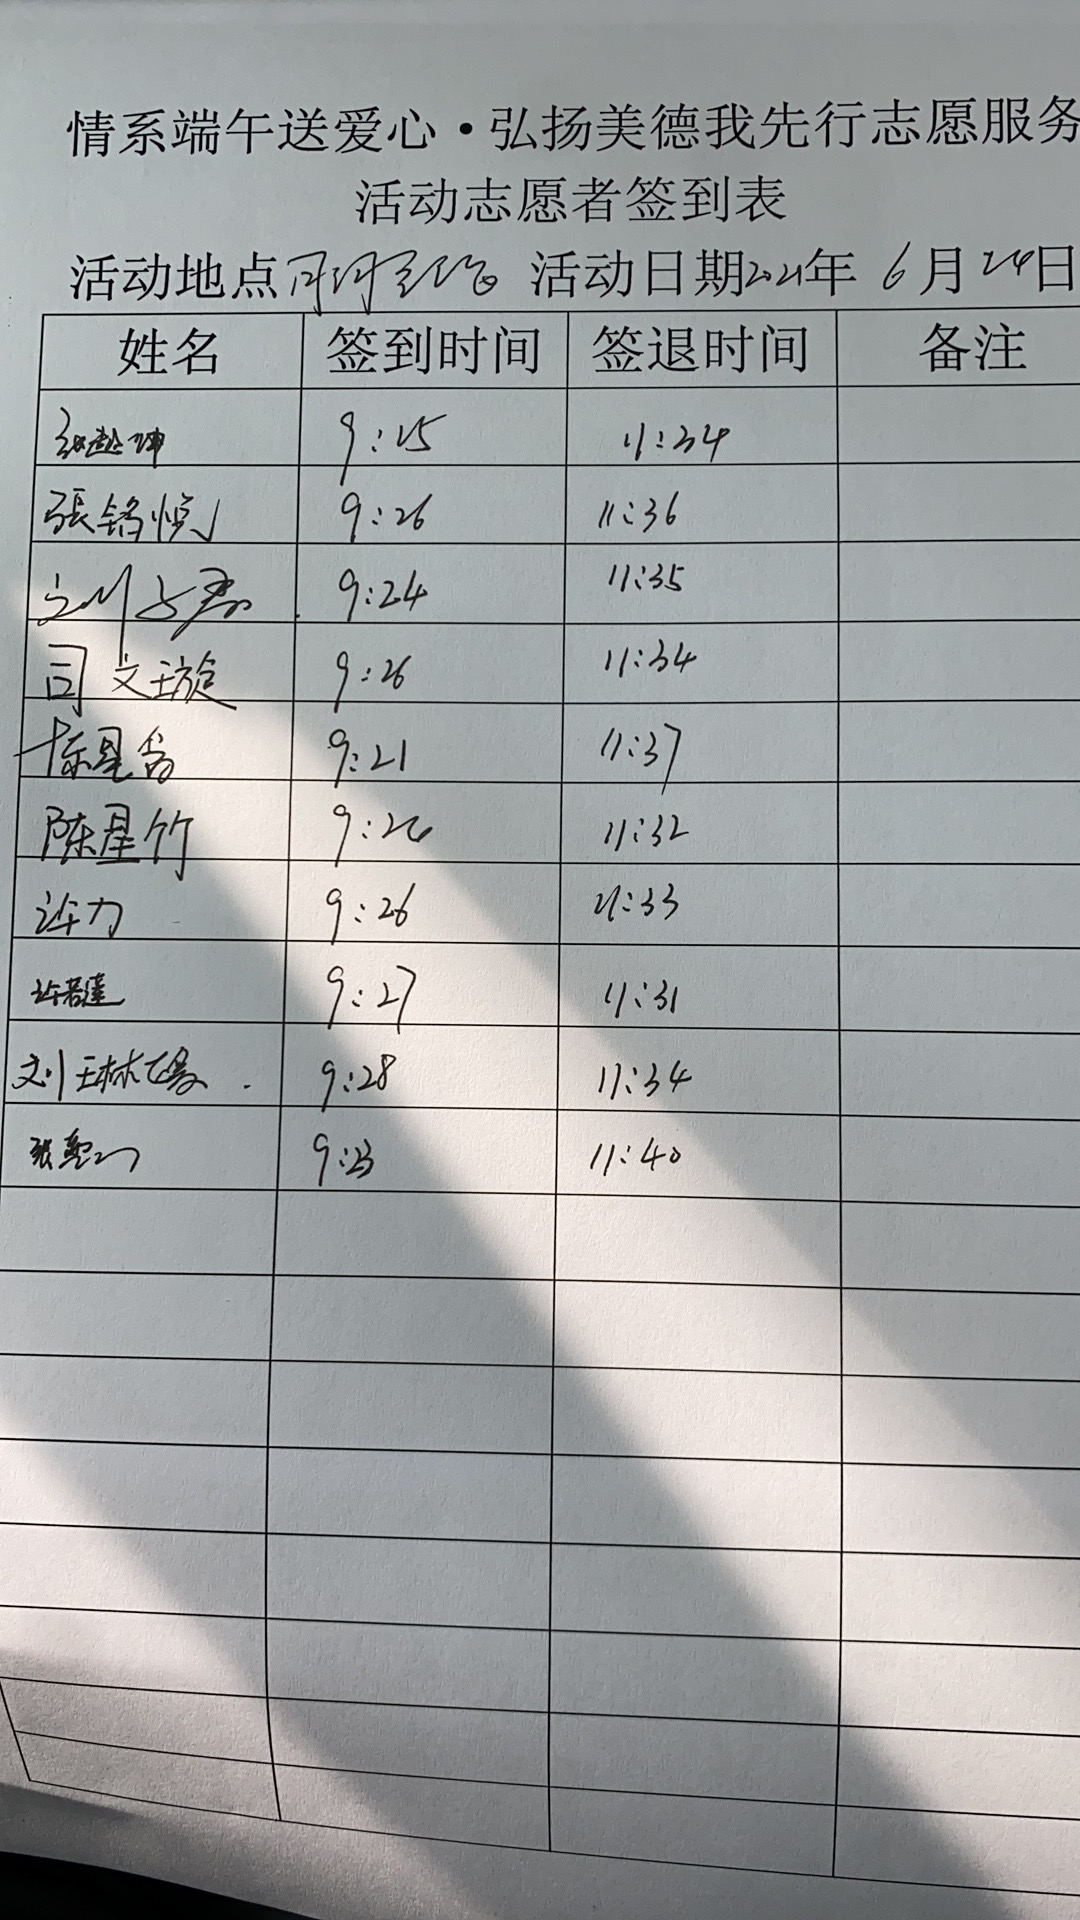 情系端午送爱心·弘扬美德我先行志愿服务
活动志愿者签到表
活动地点 活动日期2021年 6月24日
姓名 签到时间 签退时间 备注
9:25 11:34
張铭悦 9:26 11:36
9:24 11:35
司文璇 9:26 11:34
陈星 9:21 11:37
陈星竹 9:26 11:32
许力 9:26 11:33
许若莲 9:27 11:31
刘琳 9:28 11:34
张 9:23 11:40